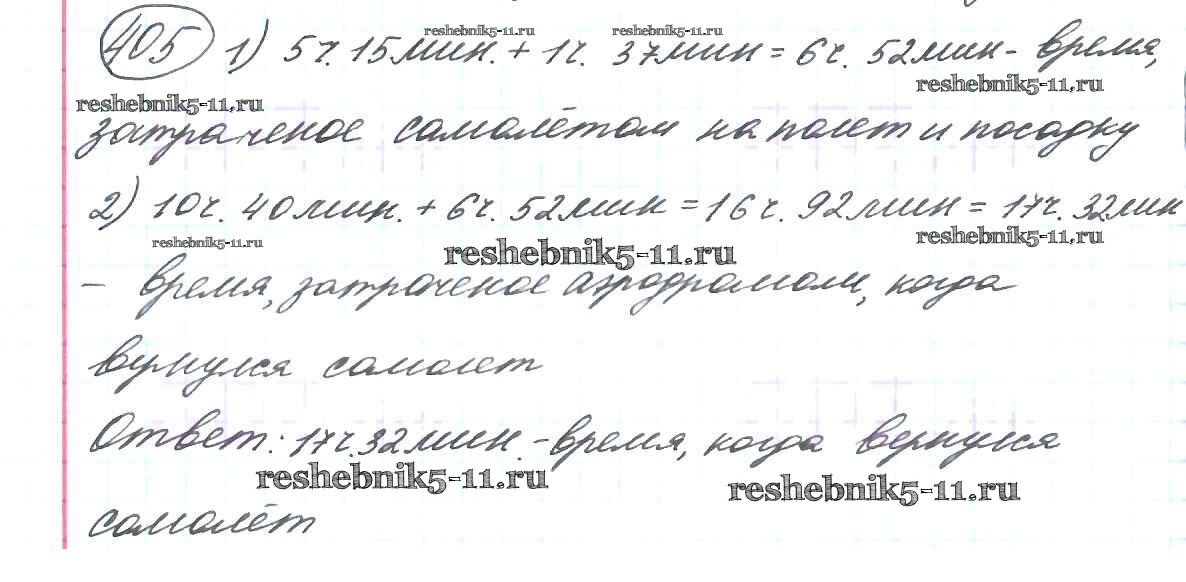 reshebnik5-11.ru reshebnik5-11.ru
405 1) 5ч. 15мин. + 1ч. 37мин = 6ч. 52мин - время,
reshebnik5-11.ru reshebnik5-11.ru
затраченое самолётом на полет и посадку
2) 10ч. 40мин. + 6ч. 52мин = 16ч. 92мин = 17ч. 32мин
reshebnik5-11.ru reshebnik5-11.ru reshebnik5-11.ru
- время, затраченое аэродромом, когда
вернулся самолет
Ответ: 17ч. 32мин. - время, когда вернулся
reshebnik5-11.ru reshebnik5-11.ru
самолёт